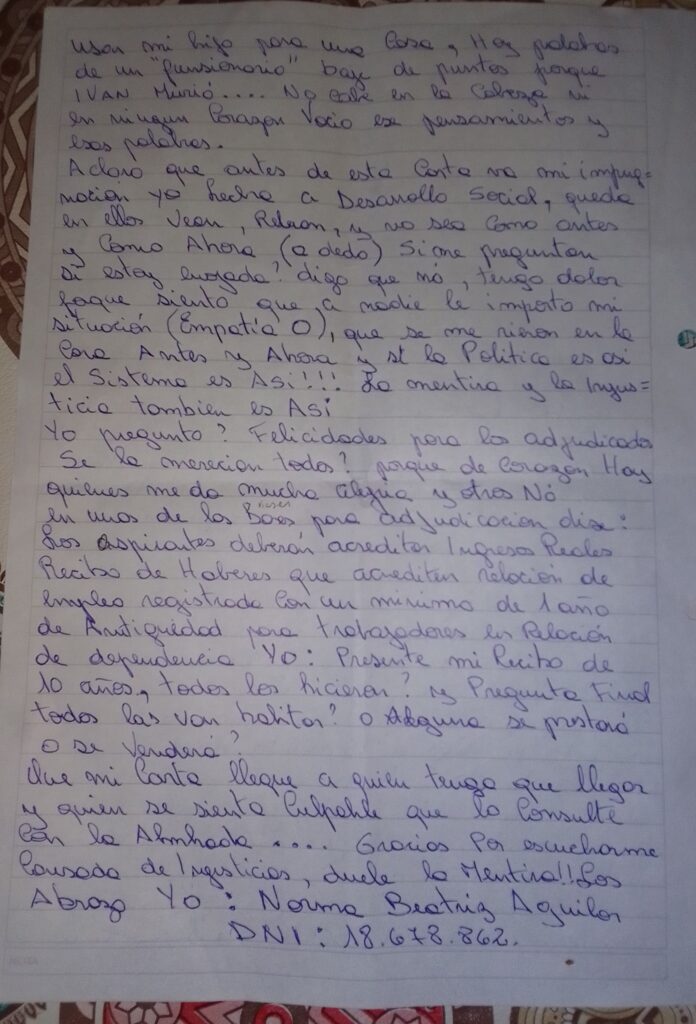 usan mi hijo para una Casa, Hay palabras
de un "funsionario" baje de puntos porque
IVAN Murió.... No cabe en la Cabeza ni
en ningun Corazon Vacio ese pensamientos y
esas palabras.
Aclaro que antes de esta Carta va mi impug=
nación ya hecha a Desarrollo Social, queda
en ellos Vean, Relean, y no sea Como antes
y Como Ahora (a dedo) Si me preguntan
si estoy enojada? digo que nó, tengo dolor
porque siento que a nadie le importo mi
situación (Empatía 0), que se me rieron en la
Cara Antes y Ahora y si la Politica es asi
el Sistema es Asi!!! La mentira y la Injus=
ticia tambien es Asi
Yo pregunto? Felicidades para los adjudicados
Se la merecian todos? porque de Corazon Hay
quienes me da mucha alegria y otros Nó
en unos de las Bases para adjudicacion dise:
Los aspirantes deberán acreditar Ingresos Reales
Recibo de Haberes que acrediten relación de
empleo registrada Con un minimo de 1 año
de Antiguedad para trabajadores en Relación
de dependencia Yo: Presente mi Recibo de
10 años, todos los hicieron? y Pregunta Final
todos las van habitar? o Alguna se prestará
o se Venderá?
Que mi Carta llegue a quien tenga que llegar
y quien se sienta Culpable que lo Consulte
Con la Almhada .... Gracias Por escucharme
Cansada de Injusticias, duele la Mentira!! Los
Abrazo Yo: Norma Beatriz Aguilar
DNI: 18.678.862.